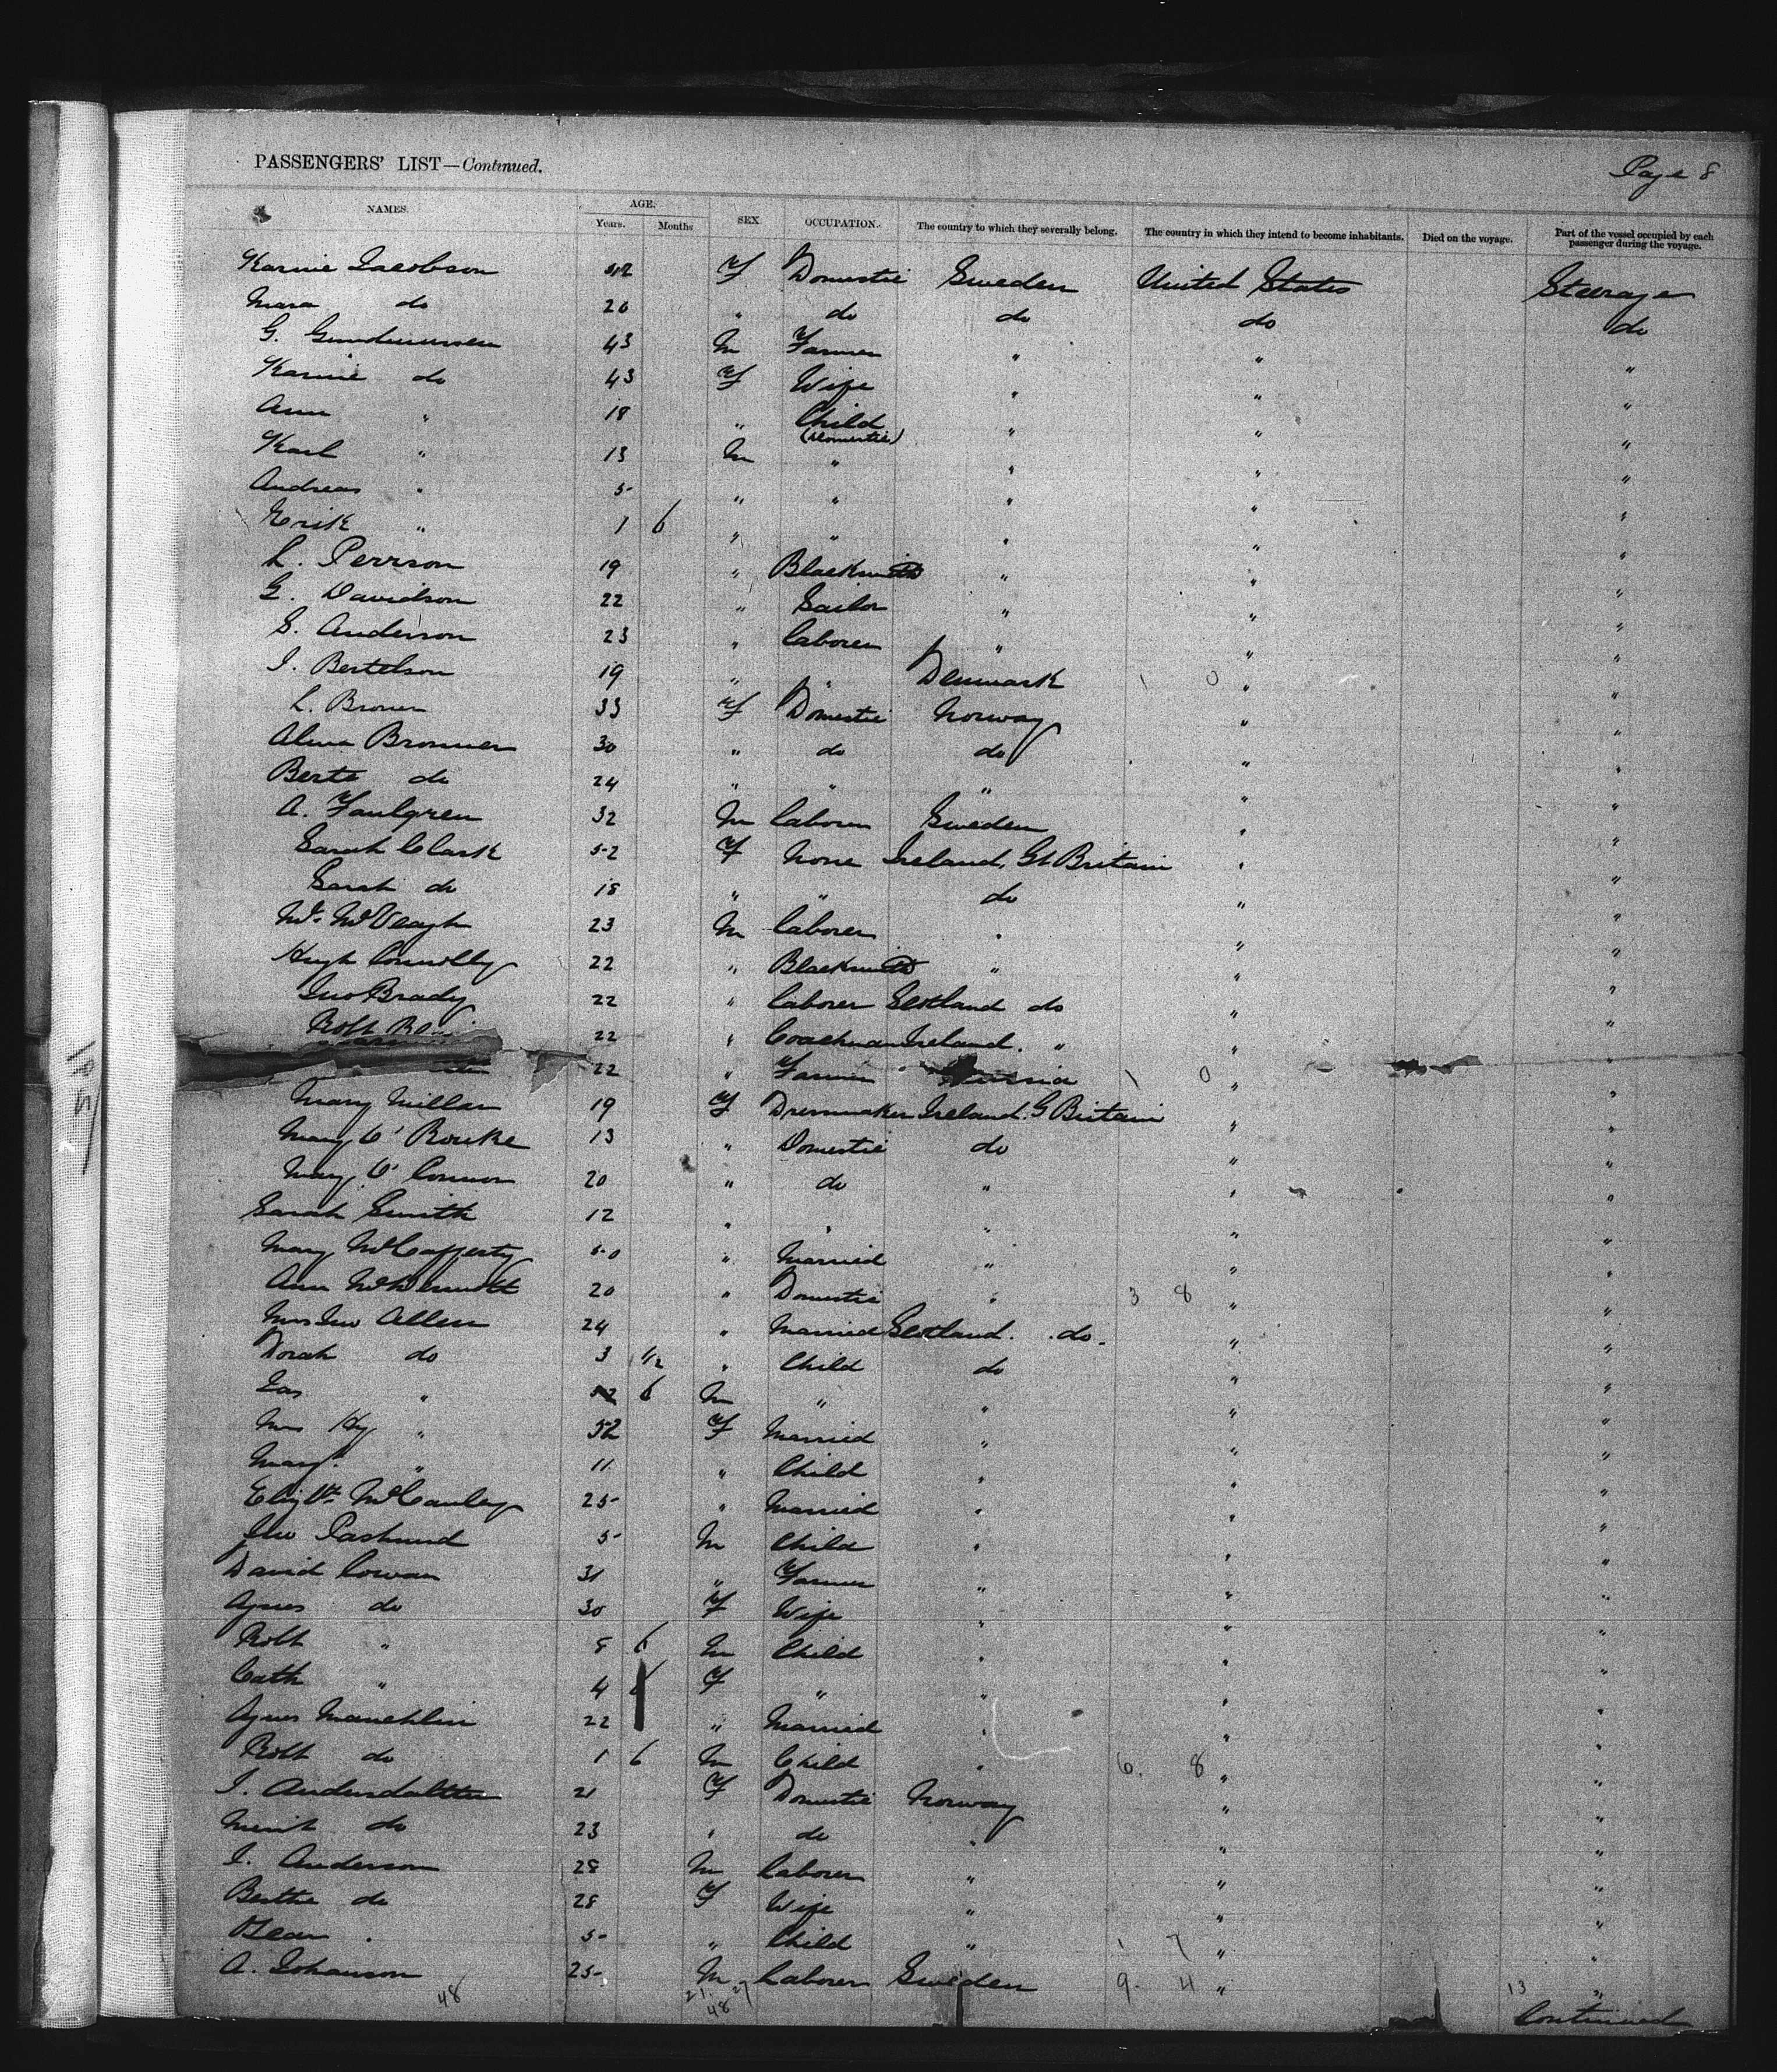 PASSENGERS' LIST—Continued. Page 8
NAMES. AGE. Years. Months SEX. OCCUPATION. The country to which they severally belong. The country in which they intend to become inhabitants. Died on the voyage. Part of the vessel occupied by each passenger during the voyage.
Karnie Jacobson F Domestic Sweden United States Steerage
do 26 " do do do do
G. Gundmunsen 43 M Farmer " " "
Karnie do 43 F Wife " " "
Ann " 18 " Child (Domestic) " " "
Karl " 13 M " " " "
Andreas " 5 " " " " "
Erik " 1 6 " " " " "
L. Perrson 19 " Blacksmith " " "
G. Davidson 22 " Sailor " " "
S. Anderson 23 " Laborer " " "
I. Bertelson 19 " " Denmark 1 0 " "
L. Broner 33 F Domestic Norway " "
Alma Bronner 30 " do do " "
Berte do 24 " " " " "
A. Faulgren 32 M Laborer Sweden " "
Sarah Clark 52 F None Ireland, Gt Britain " "
Sarah do 18 " " do " "
McVeagh 23 M Laborer " " "
Hugh Connolly 22 " Blacksmith " " "
Jno Brady 22 " Laborer Scotland do " "
Robt 22 " Coachman Ireland. " " "
22 " Farmer Russia 1 0 " "
Mary Millar 19 F Dressmaker Ireland. G Britain " "
Mary O'Rourke 13 " Domestic do " "
Mary O'Connor 20 " do " " "
Sarah Smith 12 " " " " "
Mary McCafferty 50 " Married " " "
Ann McDermott 20 " Domestic " 3 8 " "
Mrs Jno Allen 24 " Married Scotland. do. " "
Dorah do 3 " Child do " "
Jas " 6 M " " " "
Mrs Hy " 32 F Married " " "
Mary " 11 " Child " " "
Elizbth McCauley 25 " Married " " "
5 M Child " " "
David Cowan 31 " Farmer " " "
Agnes do 30 F Wife " " "
Robt " 8 6 M Child " " "
Cath " 4 F " " " "
Agnes Mauchlin 22 " Married " " "
Robt do 1 6 M Child " 6. 8 " "
I. 21 F Domestic Norway " "
do 23 " do " " "
I. Anderson 28 M Laborer " " "
Berthe do 28 F Wife " " "
Oscar " 5 " Child " 1 7 " "
A. Johanson 25 M Laborer Sweden 9. 4 " "
48 21. 27 48 13 Continued